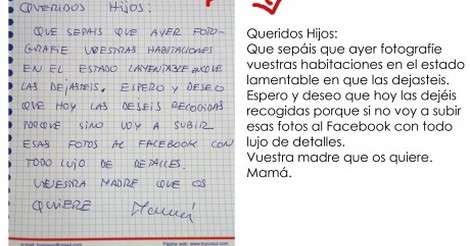 QUERIDOS HIJOS:
QUE SEPAIS QUE AYER FOTO-
GRAFIE VUESTRAS HABITACIONES
EN EL ESTADO LAMENTABLE EN QUE
LAS DEJASTEIS. ESPERO Y DESEO
QUE HOY LAS DEJEIS RECOGIDAS
PORQUE SINO VOY A SUBIR
ESAS FOTOS AL FACEBOOK CON
TODO LUJO DE DETALLES.
VUESTRA MADRE QUE OS
QUIERE Mamá
Queridos Hijos:
Que sepáis que ayer fotografíe
vuestras habitaciones en el estado
lamentable en que las dejasteis.
Espero y deseo que hoy las dejéis
recogidas porque si no voy a subir
esas fotos al Facebook con todo
lujo de detalles.
Vuestra madre que os quiere.
Mamá.